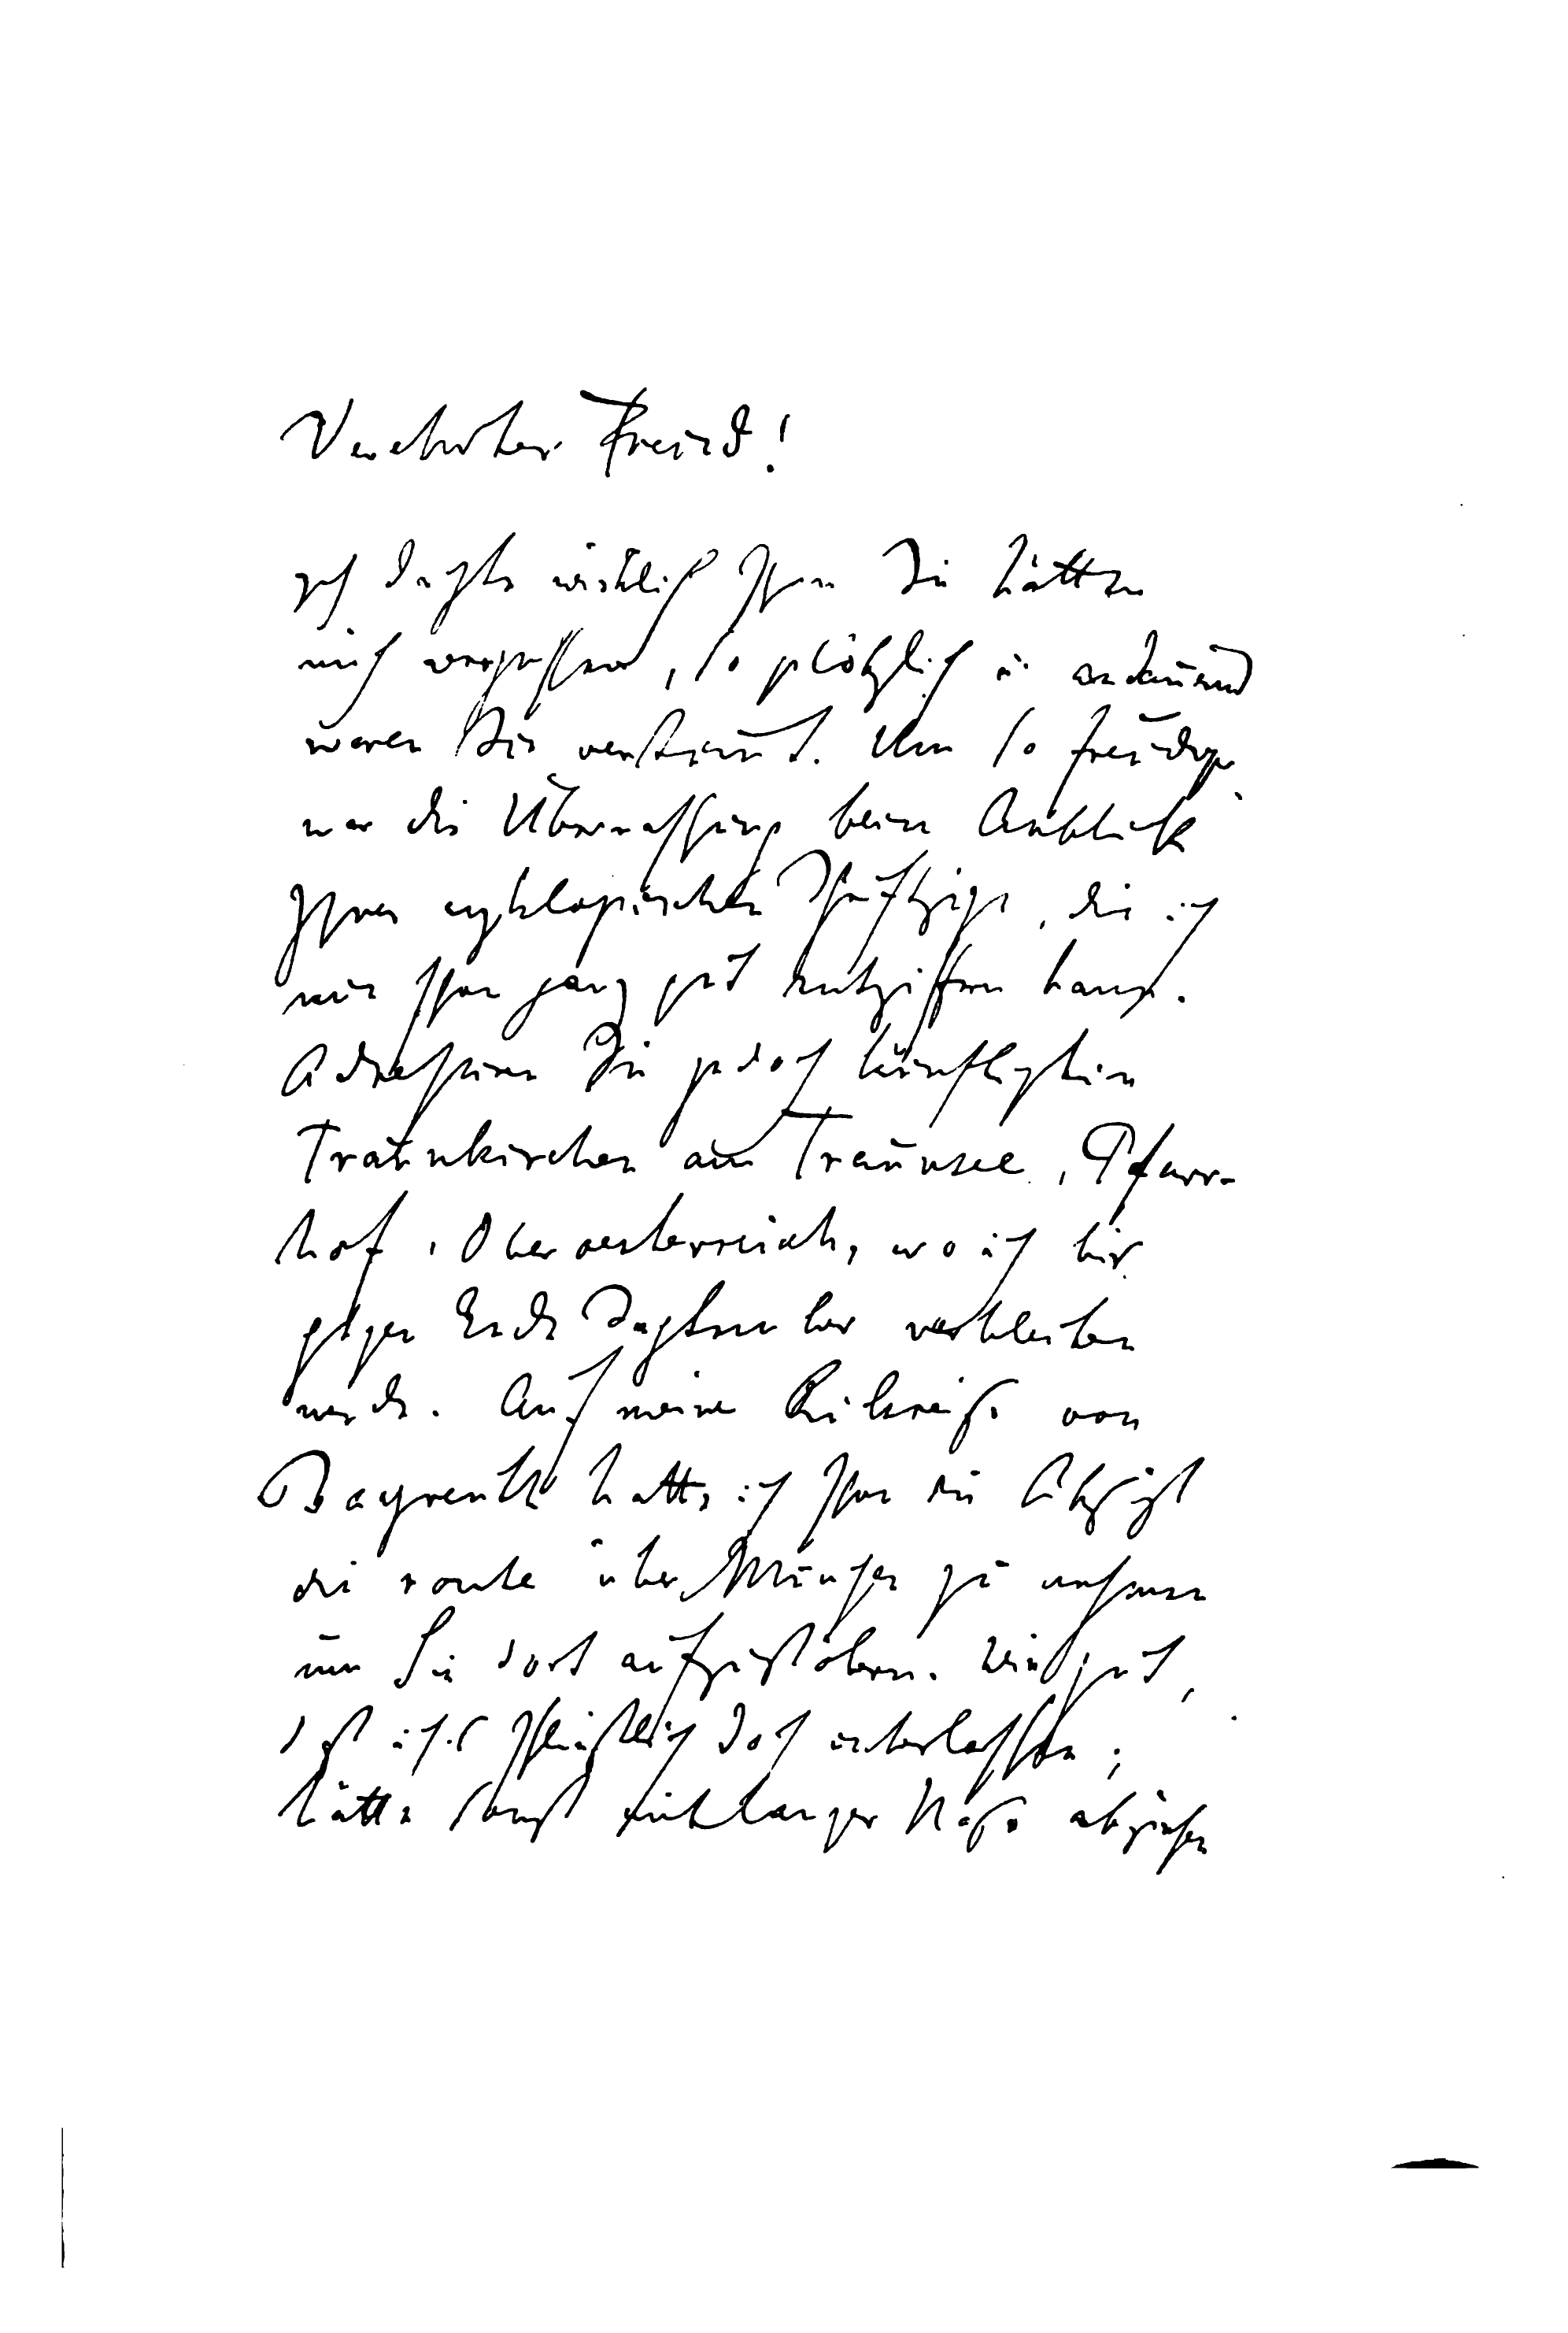 Verehrter Freund!
ich dachte wirklich schon Sie hätten
mich vergessen, so plötzlich u. andauernd
waren Sie verstummt. Um so freudiger
war die Überraschung beim Anblick
Ihrer cyklopischen Schriftzüge, die ich
nun schon ganz gut entziffern kann.
Adressiren Sie jedoch künftighin
Traunkirchen am Traunsee, Pfarr-
hof, Oberoesterreich, wo ich bis
gegen Ende September verbleiben
werde. Auf meiner Rükreise von
Bayreuth hatte ich schon die Absicht
die route über München zu nehmen
um Sie dort aufzustöbern. Wie gut,
daß ich's schließlich doch unterlassen;
hätte sonst mit langer Nase abziehen